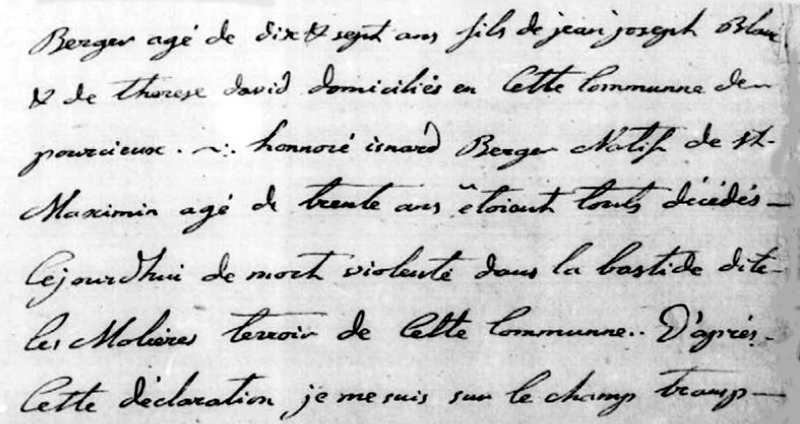 Berger agé de dix & sept ans fils de jean joseph Blanc
& de therese david domiciliés en Cette Communne de
pourcieux. ~ honnoré isnard Berger Natif de st-
Maximin agé de trente ans étoient touts décédés -
Cejourd'hui de mort violente dans la bastide dite-
les Molières terroir de Cette Communne.. D'après-
Cette déclaration je me suis sur le champ transp-